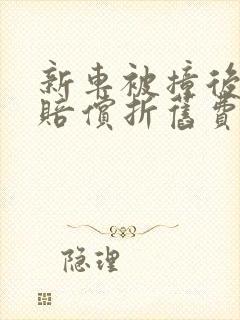 新車被撞後
賠償折舊費
隐理